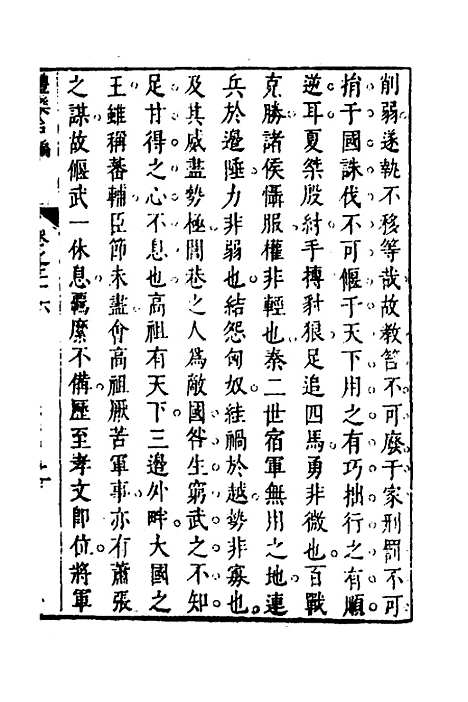 削弱遂執不移等哉故教笞不可廢于家刑罰不可
捐于國誅伐不可偃于天下用之有巧拙行之有順
逆耳夏桀殷紂手摶豺狼足追四馬勇非微也百戰
克勝諸侯懾服權非輕也秦二世宿軍無用之地連
兵於邊陲力非弱也結怨匈奴絓禍於越勢非寡也
及其威盡勢極閭巷之人爲敵國咎生窮武之不知
足甘得之心不息也高祖有天下三邊外畔大國之
王雖稱蕃輔臣節未盡會高祖厭苦軍事亦有蕭張
之謀故偃武一休息羈縻不備歷至孝文即位將軍
禮樂合編